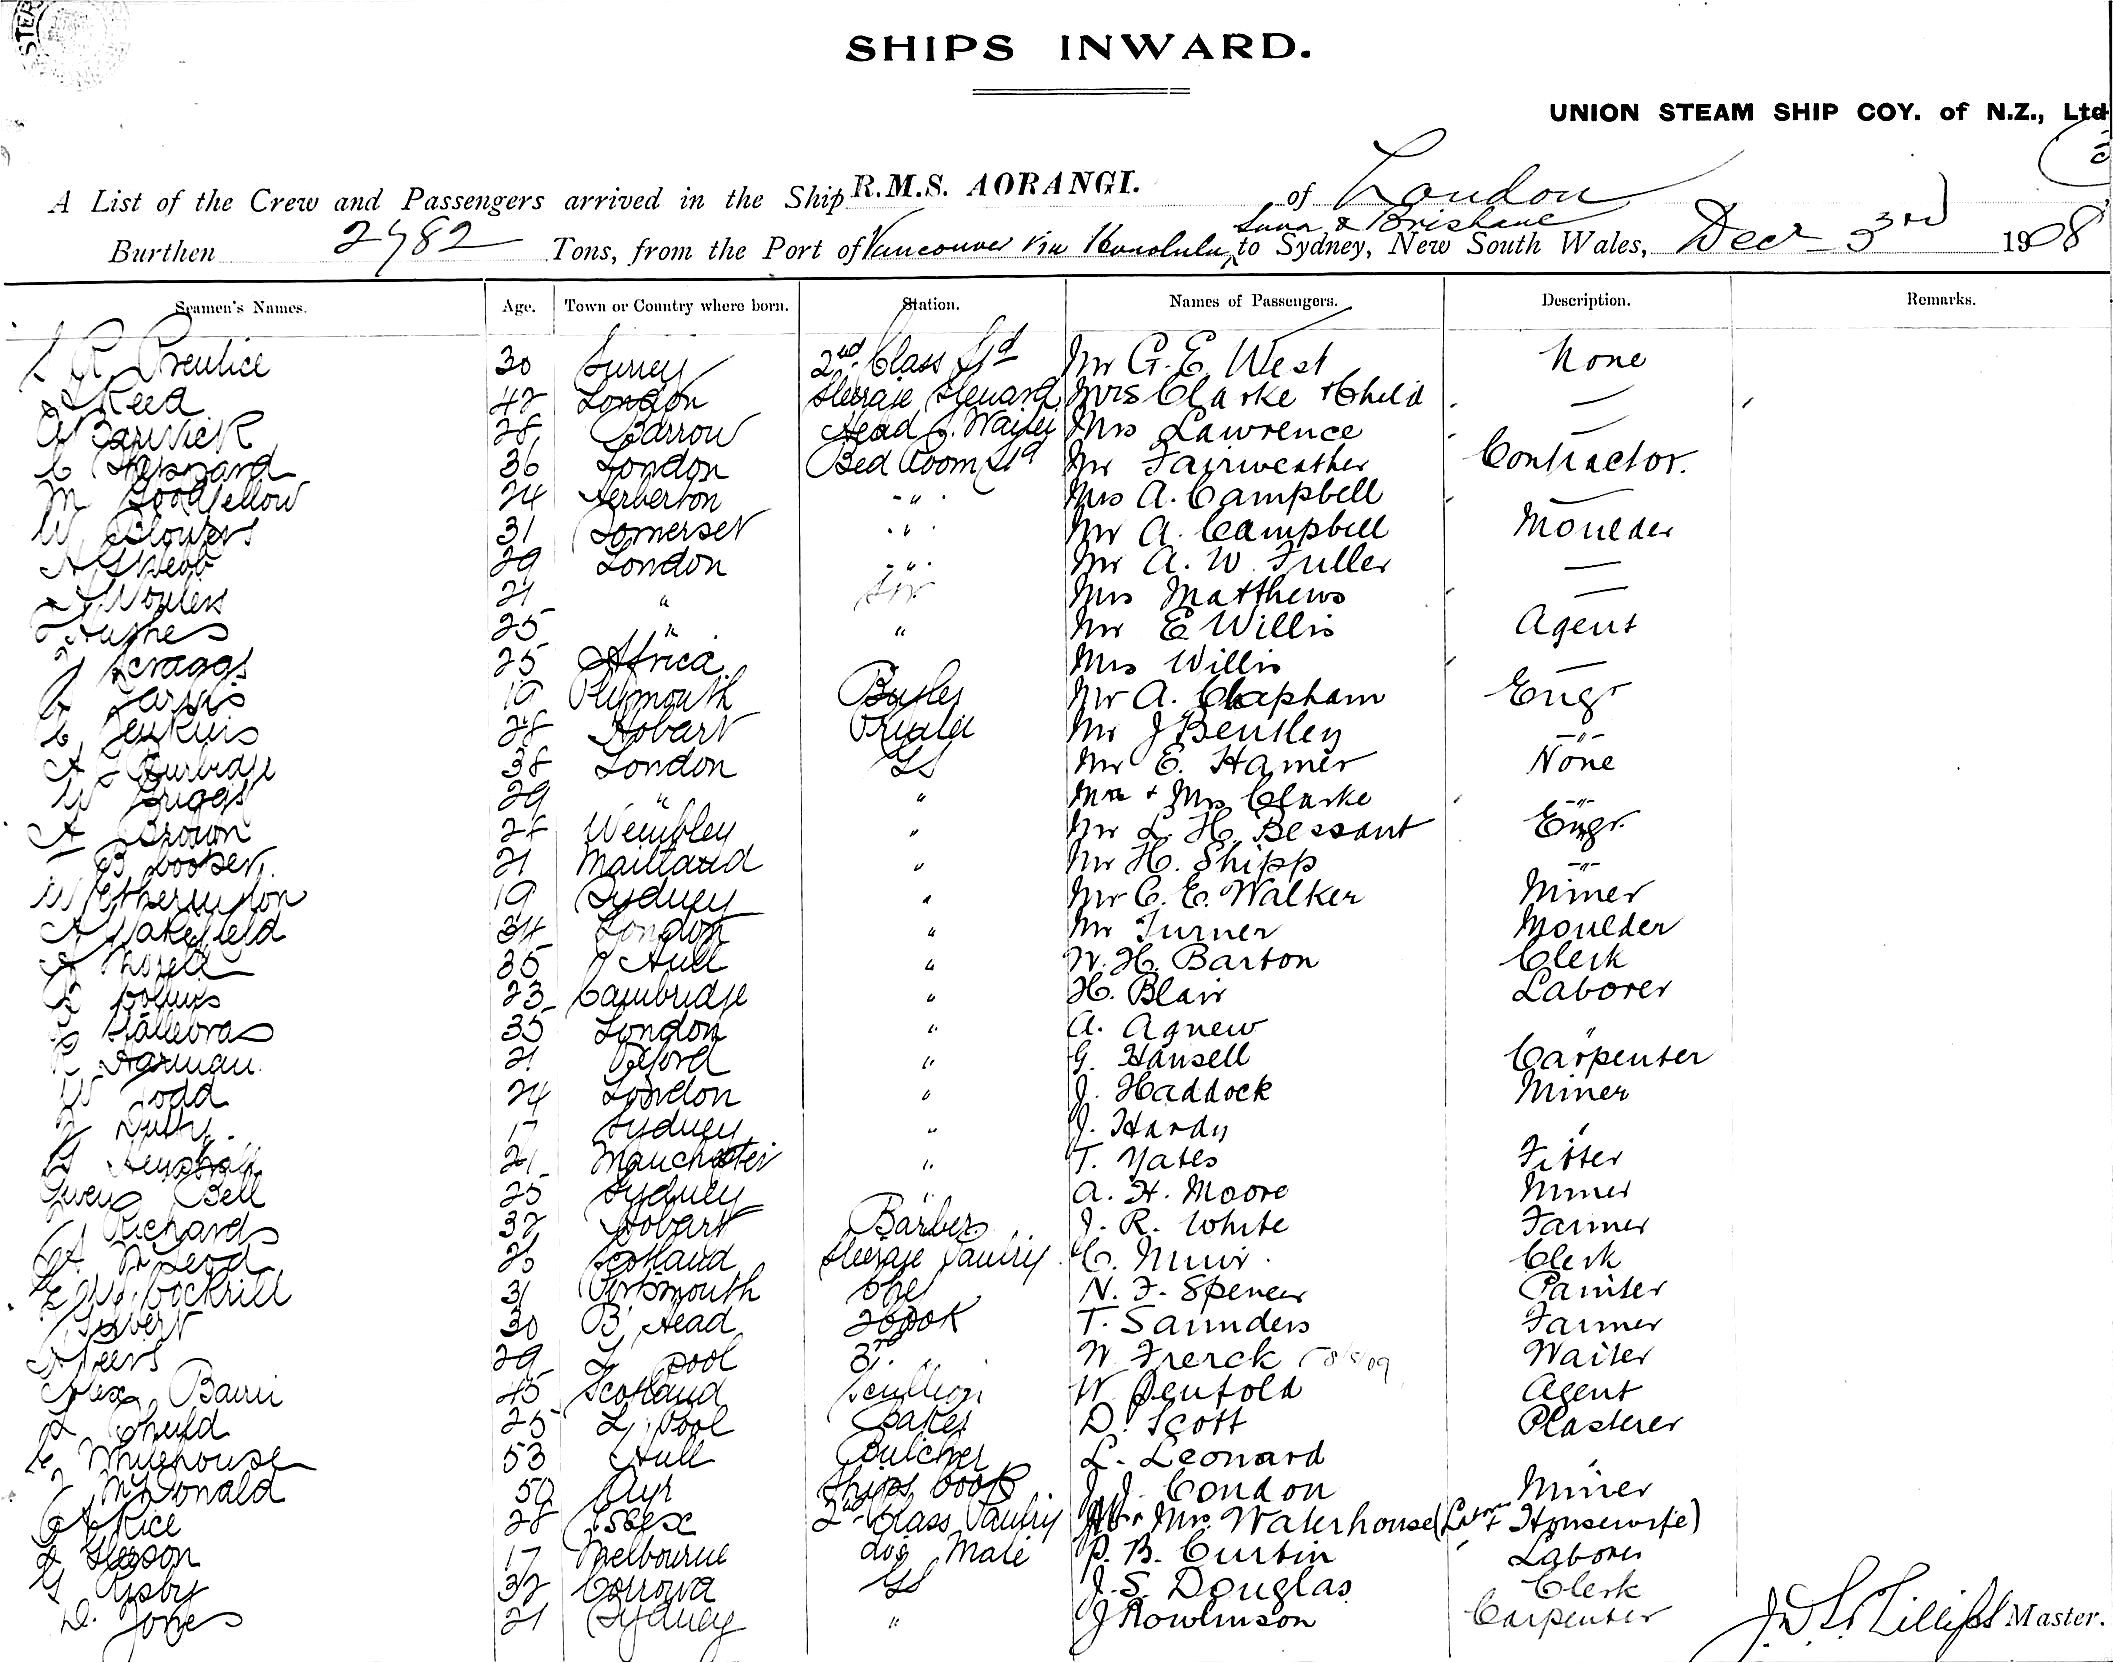 SHIPS INWARD.
UNION STEAM SHIP COY. of N.Z., Ltd
A List of the Crew and Passengers arrived in the Ship R.M.S. AORANGI. of London
Suva & Brisbane
Burthen 2782 Tons, from the Port of Vancouver via Honolulu, to Sydney, New South Wales, Decr 3rd 1908
Seamen's Names. Age. Town or Country where born. Station. Names of Passengers. Description. Remarks.
R Prentice 30 Surrey 2nd Class Std Mr G. E. West None
Reed 42 London Steerage Steward Mrs Clarke & Child —
Barwick 28 Barrow Head S. Waiter Mrs Lawrence —
C 36 London Bed Room Std Mr Fairweather Contractor.
M Goodfellow 24 Herberton " Mrs A. Campbell —
W Blowers 31 Somerset " Mr A. Campbell Moulder
A 29 London " Mr A. W. Fuller —
21 " Mrs Matthews —
Hughes 25 " " Mr E Willis Agent
J Scraggs 25 Africa Mrs Willis —
Jarvis 19 Plymouth Bugler Mr A. Clapham Engr
C Jenkins 28 Hobart Mr J Bentley "
A Burbidge 38 London GS Mr E. Hamer None
W Griggs 29 " " Mr & Mrs Clarke "
A Brown 28 Wembley " Mr L. H. Bessant Engr.
B Cooper. 21 Maitland " Mr H. Shipp "
W Etherington 19 Sydney " Mr C. E. Walker Miner
A Wakefield 34 London " Mr Turner Moulder
A 35 Hull " W. H. Barton Clerk
Collins 23 Cambridge " H. Blair Laborer
35 London " A. Agnew "
R Harman. 21 Oxford " G. Hansell Carpenter
W Todd 24 London " J. Haddock Miner
J Duffy. 17 Sydney " J. Hardy "
Henshall 21 Manchester " T. Yates Fitter
Owen Bell 25 Sydney " A. H. Moore Miner
Richards 32 Hobart Barber J. R. White Farmer
A McLeod 26 Scotland Steerage Pantry C. Muir. Clerk
E W Cockrill 31 Portsmouth Chef N. F. Spencer Painter
30 B' Head 2 Cook T. Saunders Farmer
A Peers 29 L' pool 3rd " W Frerck Waiter
Alex 45 Scotland Scullion W. Penfold Agent
Sheild 25 L' Pool Baker D. Scott Plasterer
C. Milehouse 53 Hull Butcher L. Leonard "
J McDonald 50 Ayr Ships Cook J. J. Condon Miner
Rice 28 Essex 2nd Class Pantry Mr & Mrs. Waterhouse & Housewife)
Gleeson 17 Melbourne do Mate P. B. Curtin Laborer
G Risby 32 Corowa GS J. S. Douglas Clerk
D. Jones 21 Sydney " J Rowlinson Carpenter
Master.